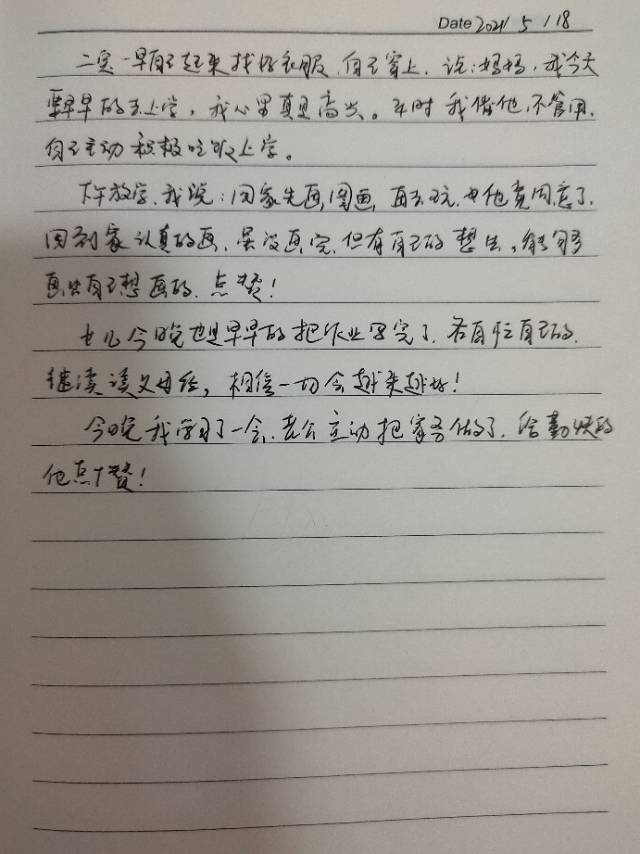 Date 2021/5/18
二宝一早自己起来找好衣服,自己穿上,说:妈妈,我今天
要早早的去上学,我心里真是高兴。平时我催他,不管用,
自己主动积极吃饭上学。
下午放学,我说:回家先画图画,再去玩,他竟同意了,
回到家认真的画,虽没画完,但有自己的想法,能够
画出自己想画的,点赞!
女儿今晚也是早早的把作业写完了,各自忙自己的,
继续读父母经,相信一切会越来越好!
今晚我学习了一会,老公主动把家务做了,给勤快的
他点个赞!